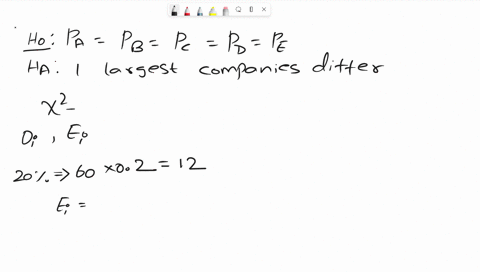 H0: PA = PB = PC = PD = PE
HA: 1 largest companies differ
χ² –
Oi, Ei
20% => 60 × 0.2 = 12
Ei =